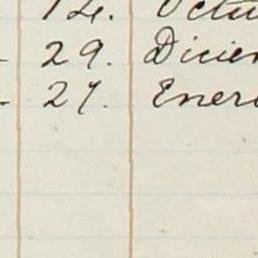 14. Octu
29. Dicie
27. Ener